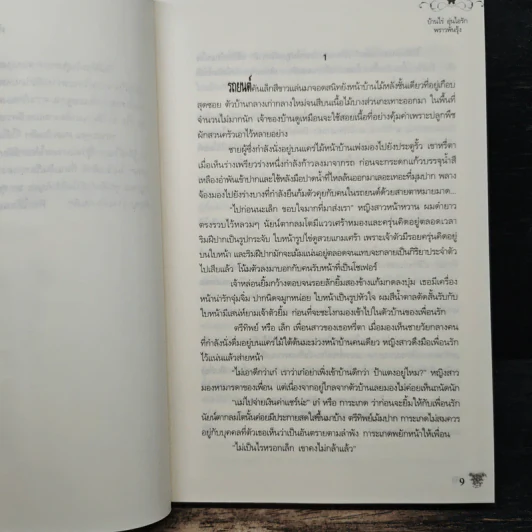 บ้านไร่ อุ่นไอรัก
พราวพันรุ้ง
1
รถยนต์คันเล็กสีขาวแล่นมาจอดสนิทยังหน้าบ้านไม้หลังชั้นเดียวที่อยู่เกือบ
สุดซอย ตัวบ้านกลางเก่ากลางใหม่จนสีบนเนื้อไม้บางส่วนกะเทาะออกมา ในพื้นที่
จำนวนไม่มากนัก เจ้าของบ้านดูเหมือนจะใช้สอยเนื้อที่อย่างคุ้มค่าเพราะปลูกพืช
ผักสวนครัวเอาไว้หลายอย่าง
ชายผู้ซึ่งกำลังนั่งอยู่บนแคร่ไม้หน้าบ้านเพ่งมองไปยังประตูรั้ว เขาหรี่ตา
เมื่อเห็นร่างเพรียวร่างหนึ่งกำลังก้าวลงมาจากรถ ก่อนจะกระดกแก้วบรรจุน้ำสี
เหลืองอำพันเข้าปากและใช้หลังมือปาดน้ำที่ไหลล้นออกมาเลอะเทอะที่มุมปาก พลาง
จ้องมองไปยังร่างบางที่กำลังยืนก้มตัวคุยกับคนในรถยนต์ด้วยสายตาหมายมาด...
“ไปก่อนนะเล็ก ขอบใจมากที่มาส่งเรา” หญิงสาวหน้าหวาน ผมดำยาว
ตรงรวบไว้หลวมๆ นัยน์ตากลมโตมีแววเศร้าหมองและครุ่นคิดอยู่ตลอดเวลา
ริมฝีปากเป็นรูปกระจับ ใบหน้ารูปไข่ดูสวยแกมเศร้า เพราะเจ้าตัวมีรอยครุ่นคิดอยู่
บนใบหน้า และริมฝีปากมักจะเม้มแน่นอยู่ตลอดจนแทบจะกลายเป็นกิริยาประจำตัว
ไปเสียแล้ว โน้มตัวลงมาบอกกับคนรับหน้าที่เป็นโชเฟอร์
เจ้าหล่อนยิ้มกว้างตอบจนรอยลักยิ้มสองข้างแก้มกดลงบุ๋ม เธอมีเครื่อง
หน้าน่ารักจุ๋มจิ๋ม ปากนิดจมูกหน่อย ใบหน้าเป็นรูปหัวใจ ผมสีน้ำตาลดัดสั้นรับกับ
ใบหน้ามีเสน่ห์ยามเจ้าตัวยิ้ม ก่อนที่จะชะโงกมองเข้าไปในตัวบ้านของเพื่อนรัก
ตรีทิพย์ หรือ เล็ก เพื่อนสาวของเธอหรี่ตา เมื่อมองเห็นชายวัยกลางคน
ที่กำลังนั่งดื่มอยู่บนแคร่ไม้ใต้ต้นมะม่วงหน้าบ้านคนเดียว หญิงสาวดึงมือเพื่อนรัก
ไว้แน่นแล้วส่ายหน้า
“ไม่เอาดีกว่าเก๋ เราว่าเก๋อย่าเพิ่งเข้าบ้านดีกว่า ป้าแตงอยู่ไหม?” หญิงสาว
มองหามารดาของเพื่อน แต่เนื่องจากอยู่ไกลจากตัวบ้านเลยมองไม่ค่อยเห็นถนัดนัก
“แม่ไปจ่ายเงินค่าแชร์น่ะ” เก๋ หรือ การะเกด ว่าก่อนจะยิ้มให้กับเพื่อนรัก
นัยน์ตากลมโตนั้นค่อยมีประกายสดใสขึ้นมาบ้าง ตรีทิพย์เม้มปาก การะเกดไม่สมควร
อยู่กับบุคคลที่ตัวเธอเห็นว่าเป็นอันตรายตามลำพัง การะเกดพยักหน้าให้เพื่อน
“ไม่เป็นไรหรอกเล็ก เขาคงไม่กล้าแล้ว”
9